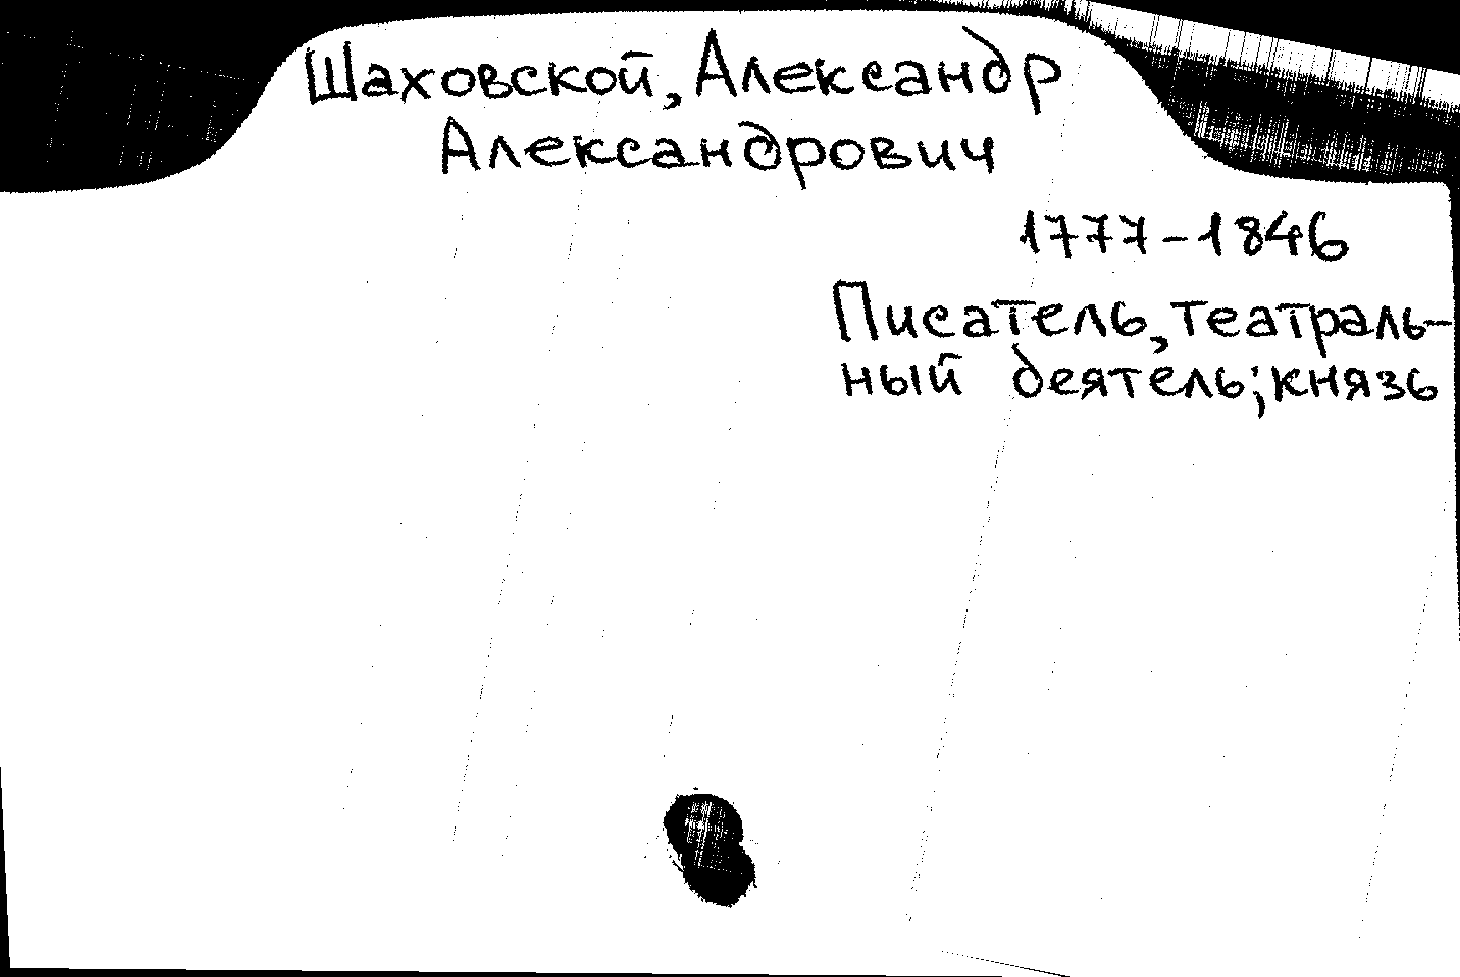 Шаховской, Александр
Александрович
1777-1846
Писатель, театраль-
ный деятель; князь